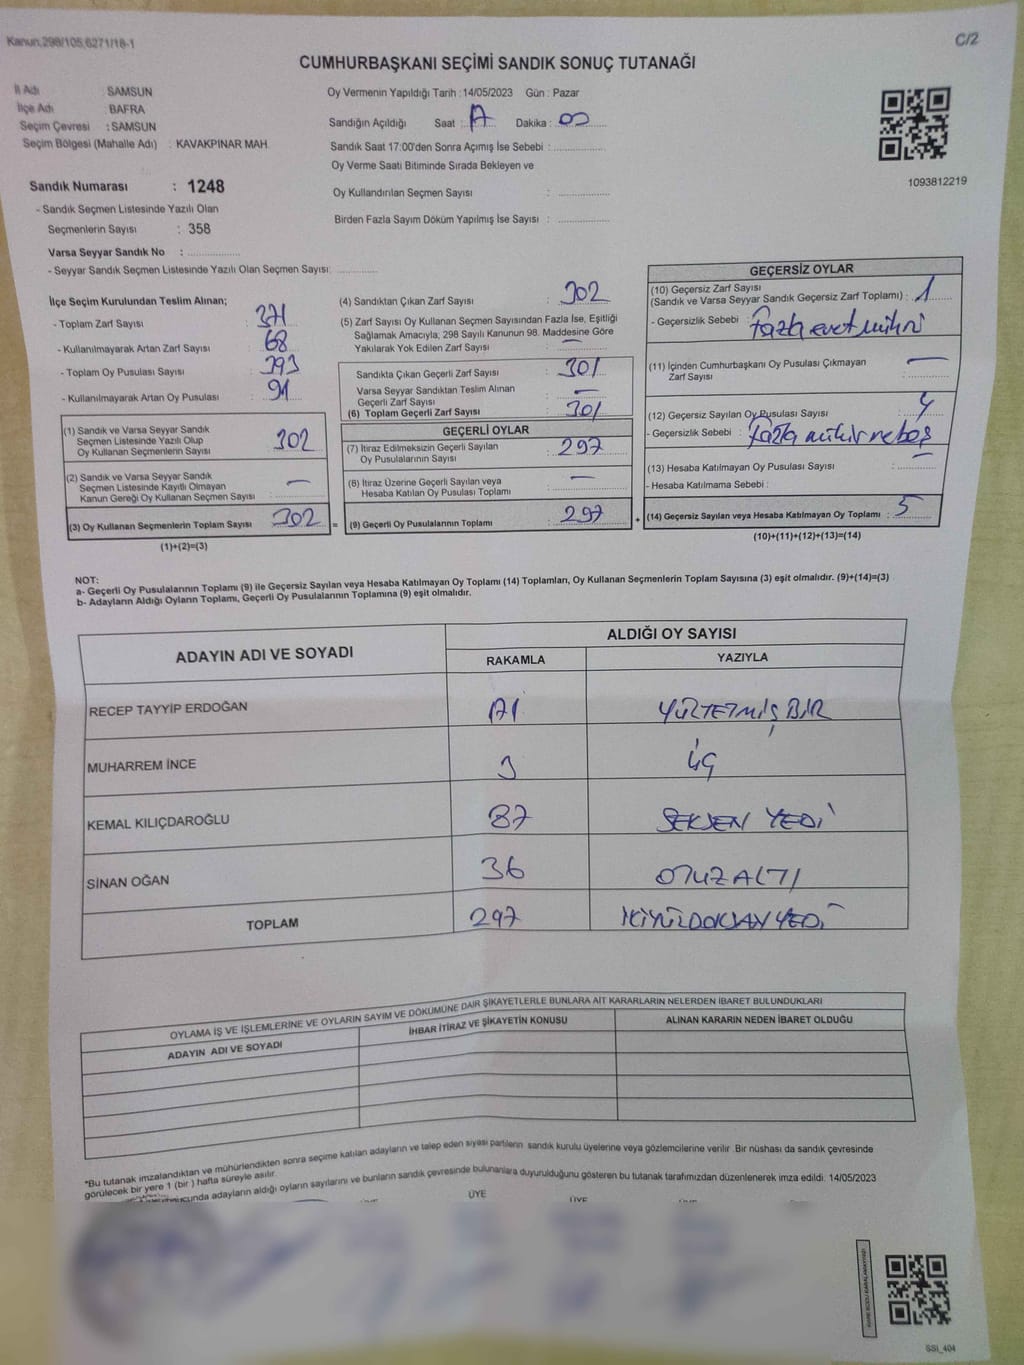 Kanun;298/105,6271/18-1
C/2
CUMHURBAŞKANI SEÇİMİ SANDIK SONUÇ TUTANAĞI
İl Adı : SAMSUN
İlçe Adı : BAFRA
Seçim Çevresi : SAMSUN
Seçim Bölgesi (Mahalle Adı) : KAVAKPINAR MAH.
Sandık Numarası : 1248
- Sandık Seçmen Listesinde Yazılı Olan
Seçmenlerin Sayısı : 358
Varsa Seyyar Sandık No :
- Seyyar Sandık Seçmen Listesinde Yazılı Olan Seçmen Sayısı:
Oy Vermenin Yapıldığı Tarih :14/05/2023 Gün : Pazar
Sandığın Açıldığı Saat : Dakika : 00
Sandık Saat 17:00'den Sonra Açımış İse Sebebi :
Oy Verme Saati Bitiminde Sırada Bekleyen ve
Oy Kullandırılan Seçmen Sayısı :
Birden Fazla Sayım Döküm Yapılmış İse Sayısı :
1093812219
İlçe Seçim Kurulundan Teslim Alınan;
- Toplam Zarf Sayısı :
- Kullanılmayarak Artan Zarf Sayısı : 68
- Toplam Oy Pusulası Sayısı : 393
- Kullanılmayarak Artan Oy Pusulası : 91
(1) Sandık ve Varsa Seyyar Sandık
Seçmen Listesinde Yazılı Olup
Oy Kullanan Seçmenlerin Sayısı : 302
(2) Sandık ve Varsa Seyyar Sandık
Seçmen Listesinde Kayıtlı Olmayan
Kanun Gereği Oy Kullanan Seçmen Sayısı : —
(3) Oy Kullanan Seçmenlerin Toplam Sayısı : 302 =
(1)+(2)=(3)
(4) Sandıktan Çıkan Zarf Sayısı : 302
(5) Zarf Sayısı Oy Kullanan Seçmen Sayısından Fazla İse, Eşitliği
Sağlamak Amacıyla, 298 Sayılı Kanunun 98. Maddesine Göre
Yakılarak Yok Edilen Zarf Sayısı : —
Sandıkta Çıkan Geçerli Zarf Sayısı : 301
Varsa Seyyar Sandıktan Teslim Alınan
Geçerli Zarf Sayısı : —
(6) Toplam Geçerli Zarf Sayısı : 301
GEÇERLİ OYLAR
(7) İtiraz Edilmeksizin Geçerli Sayılan
Oy Pusulalarının Sayısı : 297
(8) İtiraz Üzerine Geçerli Sayılan veya
Hesaba Katılan Oy Pusulası Toplamı : —
(9) Geçerli Oy Pusulalarının Toplamı : 297 +
GEÇERSİZ OYLAR
(10) Geçersiz Zarf Sayısı
(Sandık ve Varsa Seyyar Sandık Geçersiz Zarf Toplamı) : 1
- Geçersizlik Sebebi : fazla evet mührü
(11) İçinden Cumhurbaşkanı Oy Pusulası Çıkmayan
Zarf Sayısı : —
(12) Geçersiz Sayılan Oy Pusulası Sayısı : 4
- Geçersizlik Sebebi : fazla mühür ve boş
(13) Hesaba Katılmayan Oy Pusulası Sayısı : —
- Hesaba Katılmama Sebebi :
(14) Geçersiz Sayılan veya Hesaba Katılmayan Oy Toplamı : 5
(10)+(11)+(12)+(13)=(14)
NOT:
a- Geçerli Oy Pusulalarının Toplamı (9) ile Geçersiz Sayılan veya Hesaba Katılmayan Oy Toplamı (14) Toplamları, Oy Kullanan Seçmenlerin Toplam Sayısına (3) eşit olmalıdır. (9)+(14)=(3)
b- Adayların Aldığı Oyların Toplamı, Geçerli Oy Pusulalarının Toplamına (9) eşit olmalıdır.
ADAYIN ADI VE SOYADI ALDIĞI OY SAYISI
RAKAMLA YAZIYLA
RECEP TAYYİP ERDOĞAN 171 YÜZYETMİŞ BİR
MUHARREM İNCE 3 üç
KEMAL KILIÇDAROĞLU 87 SEKSEN YEDİ
SİNAN OĞAN 36 OTUZ ALTI
TOPLAM 297 İKİYÜZDOKSAN YEDİ
OYLAMA İŞ VE İŞLEMLERİNE VE OYLARIN SAYIM VE DÖKÜMÜNE DAİR ŞİKAYETLERLE BUNLARA AİT KARARLARIN NELERDEN İBARET BULUNDUKLARI
ADAYIN ADI VE SOYADI İHBAR İTİRAZ VE ŞİKAYETİN KONUSU ALINAN KARARIN NEDEN İBARET OLDUĞU
*Bu tutanak imzalandıktan ve mühürlendikten sonra seçime katılan adayların ve talep eden siyasi partilerin sandık kurulu üyelerine veya gözlemcilerine verilir .Bir nüshası da sandık çevresinde
görülecek bir yere 1 (bir ) hafta süreyle asılır.
adayların aldığı oyların sayılarını ve bunların sandık çevresinde bulunanlara duyurulduğunu gösteren bu tutanak tarafımızdan düzenlenerek imza edildi. 14/05/2023
ÜYE ÜYE
SSI_404